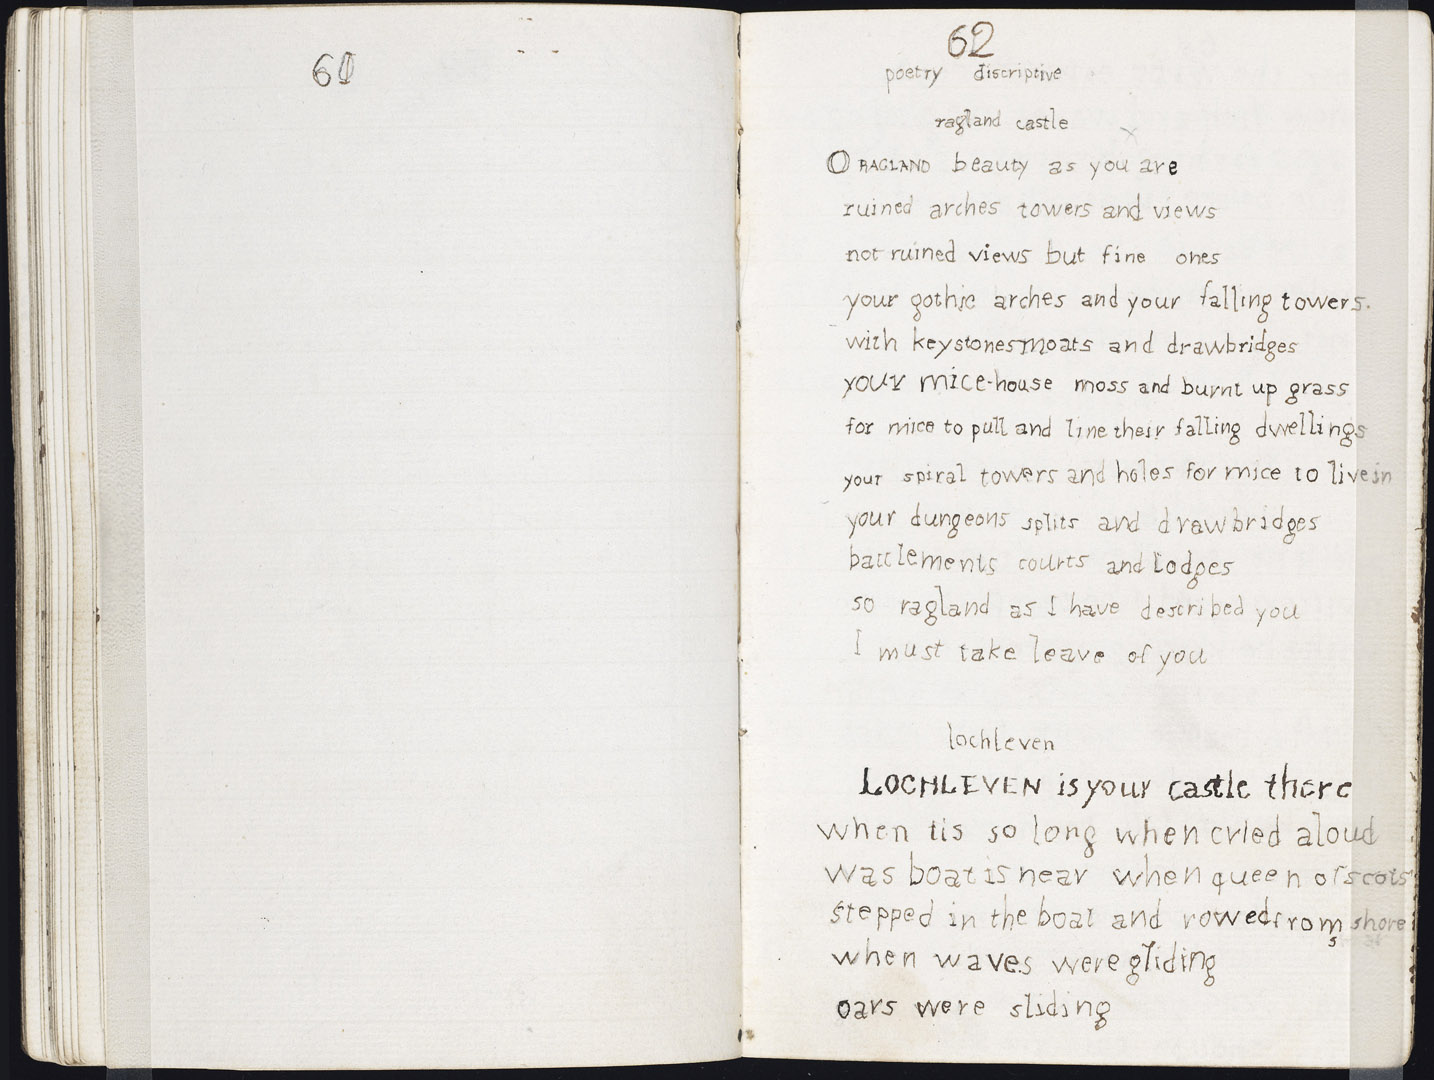 60
62
poetry discriptive
ragland castle
O RAGLAND beauty as you are
ruined arches towers and views
not ruined views but fine ones
your gothic arches and your falling towers.
with keystones moats and drawbridges
your mice-house moss and burnt up grass
for mice to pull and line their falling dwellings
your spiral towers and holes for mice to live in
your dungeons splits and drawbridges
battlements courts and lodges
so ragland as I have described you
I must take leave of you
lochleven
LOCHLEVEN is your castle there
when tis so long when cried aloud
was boat is near when queen of scots
stepped in the boat and rowed from shore
s
when waves were gliding
oars were sliding